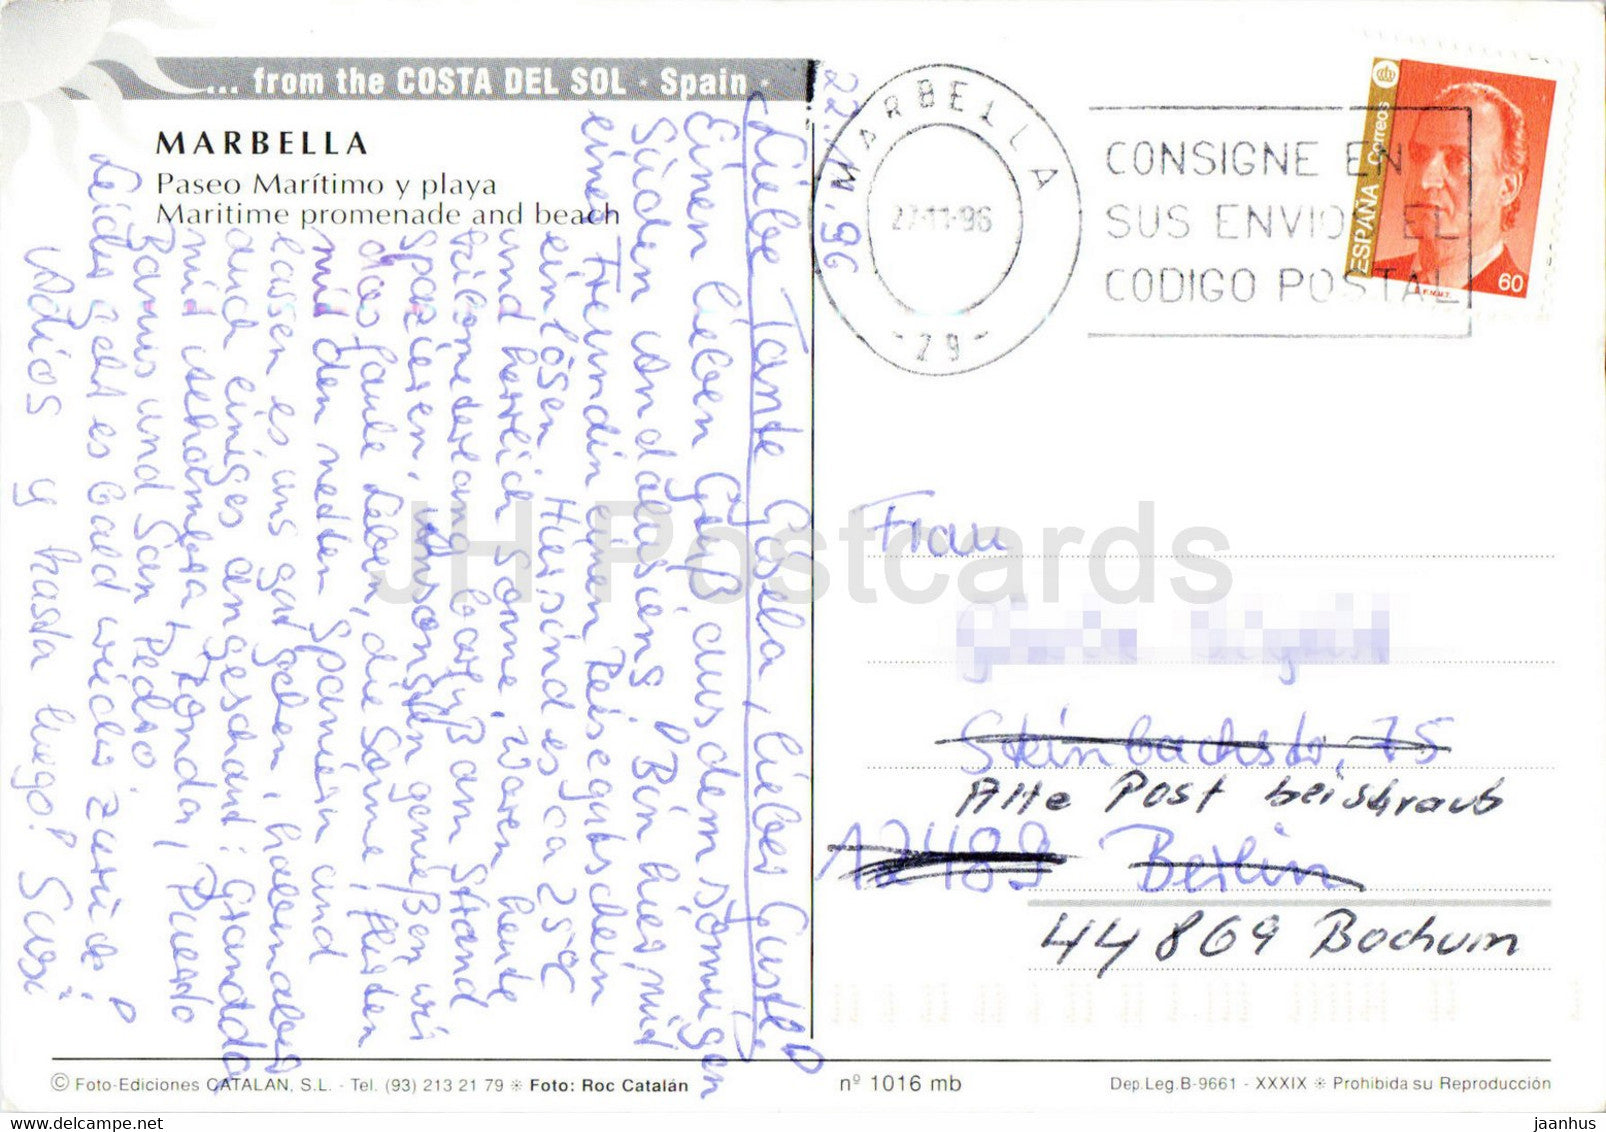 ... from the COSTA DEL SOL · Spain ·
MARBELLA
Paseo Marítimo y playa
Maritime promenade and beach
22.11.96
Liebe Tante Gisela, lieber Gustl!
Einen lieben Gruß aus dem sonnigen
Süden Andalusiens! Bin hier mit
einer Freundin einen Reisegutschein
einlösen. Hier sind es ca 25°C
und herrlich Sonne. Waren heute
stundenlang barfuß am Strand
spazieren, ansonsten genießen wir
das faule Leben, die Sonne,
mit den netten Spaniern und
lassen es uns gut gehen, haben aber
auch einiges angeschaut: Granada
mit Alhambra, Ronda, Puerto
Banus und San Pedro
Leider geht es bald wieder zurück!
Adios y hasta luego! Susi
MARBELLA
27-11-96
- 29 -
CONSIGNE EN
SUS ENVIOS EL
CODIGO POSTAL
ESPAÑA Correos
60
F.N.M.T.
Frau
Steinbachstr. 75
Alte Post beischraub
12489 Berlin
44869 Bochum
JH Postcards
© Foto-Ediciones CATALAN, S.L. - Tel. (93) 213 21 79 ※ Foto: Roc Catalán
nº 1016 mb
Dep.Leg.B-9661 - XXXIX ※ Prohibida su Reproducción
hip.com
jaanhus